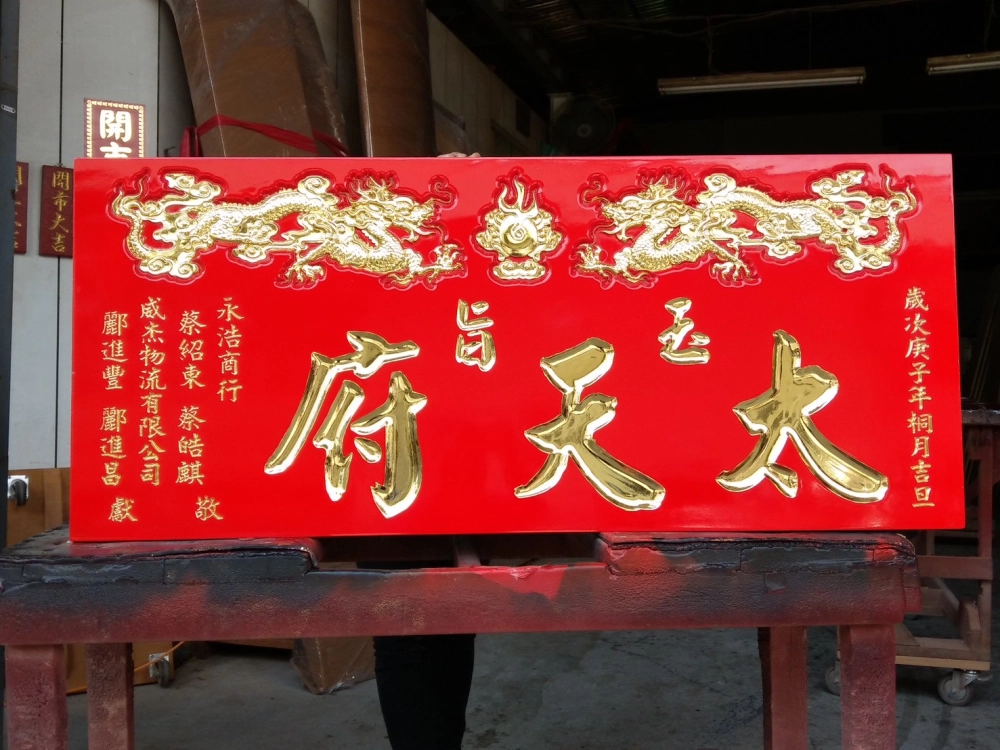 歲次庚子年桐月吉旦
玉旨
太天府
永浩商行
蔡紹東 蔡皓麒
威杰物流有限公司
酈進豐 酈進昌
敬獻
開市
開市大吉